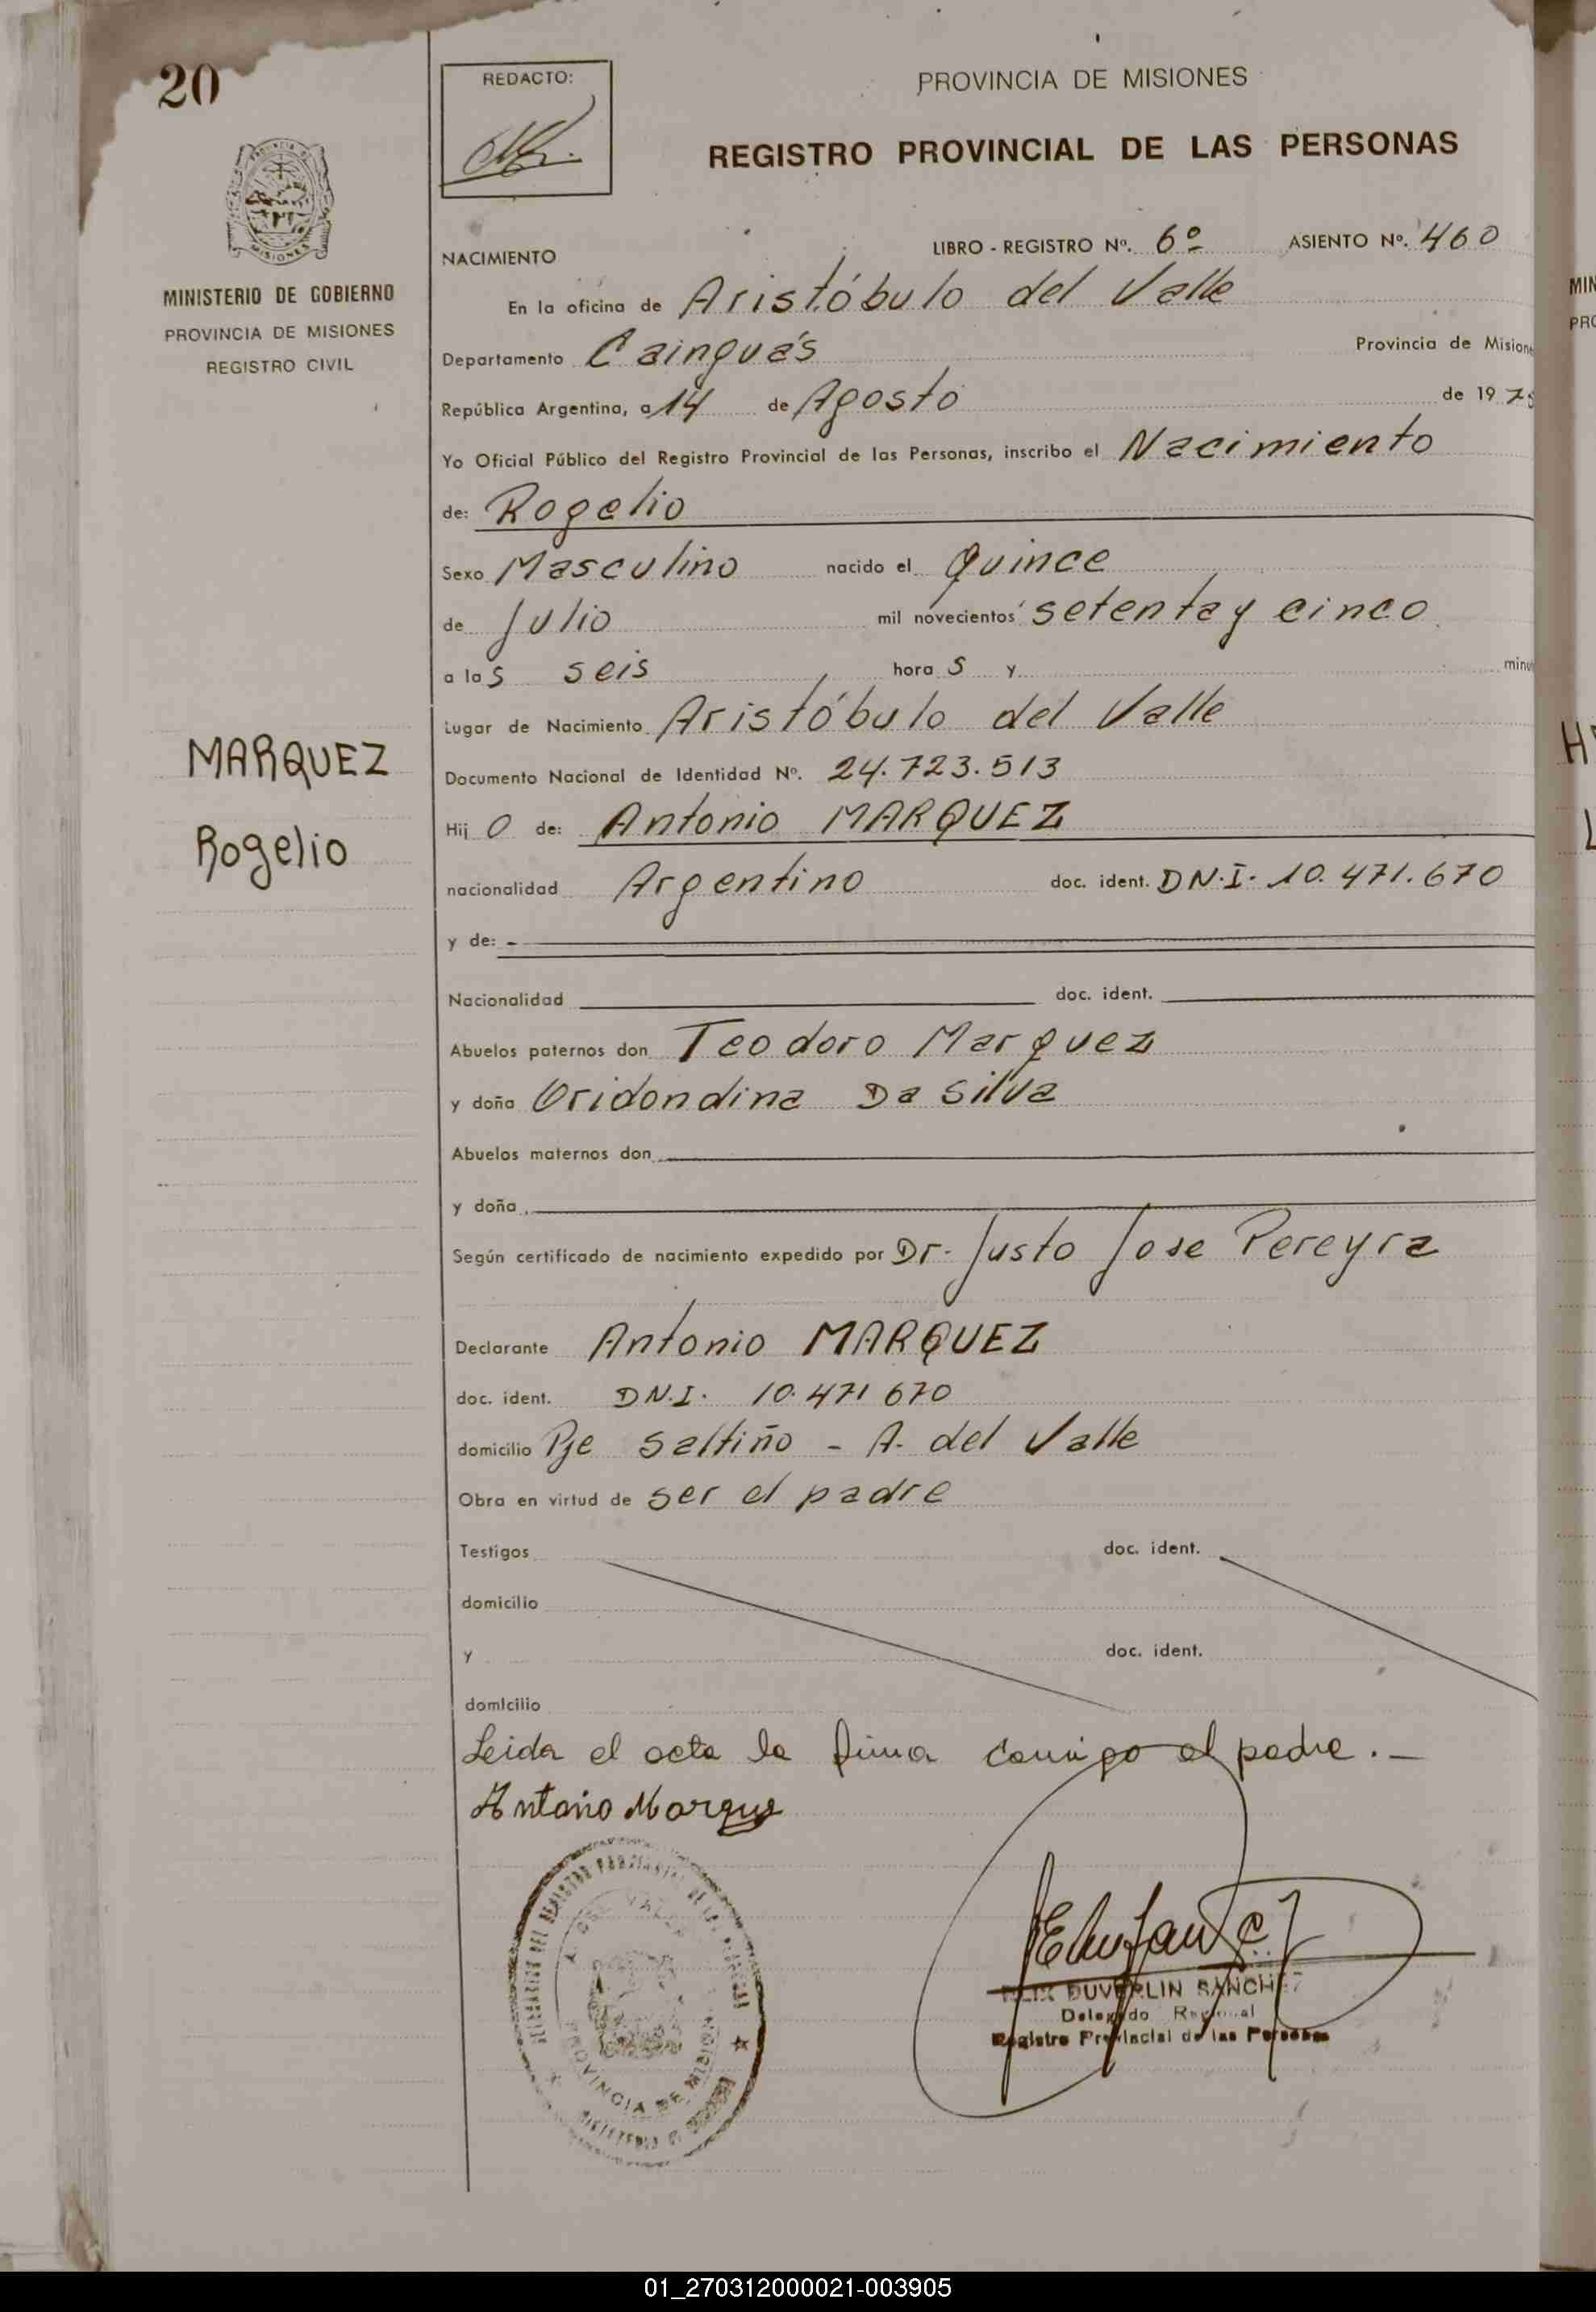 20
REDACTO:
PROVINCIA DE MISIONES
REGISTRO PROVINCIAL DE LAS PERSONAS
MINISTERIO DE GOBIERNO
PROVINCIA DE MISIONES
REGISTRO CIVIL
NACIMIENTO
LIBRO - REGISTRO Nº. 6º ASIENTO Nº. 460
En la oficina de Aristóbulo del Valle
Departamento Cainguás Provincia de Misione
República Argentina, a 14 de Agosto de 197
Yo Oficial Público del Registro Provincial de las Personas, inscribo el Nacimiento
de: Rogelio
Sexo Masculino nacido el Quince
de Julio mil novecientos setenta y cinco
a las seis horas y minu
Lugar de Nacimiento Aristóbulo del Valle
MARQUEZ
Rogelio
Documento Nacional de Identidad Nº. 24.723.513
Hijo de: Antonio MARQUEZ
nacionalidad Argentino doc. ident. DN.I. 10.471.670
y de: -
Nacionalidad doc. ident.
Abuelos paternos don Teodoro Marquez
y doña Oridondina Da Silva
Abuelos maternos don
y doña
Según certificado de nacimiento expedido por Dr. Justo Jose Pereyra
Declarante Antonio MARQUEZ
doc. ident. DN.I. 10.471 670
domicilio Pje Saltiño - A. del Valle
Obra en virtud de ser el padre
Testigos doc. ident.
domicilio
y doc. ident.
domicilio
Leida el acta la firma conmigo el padre.-
Antonio Marque
DUVERLIN SANCHEZ
Delegado Regional
Registro Provincial de las Personas
PROVINCIA DE MISIONES
01_270312000021-003905